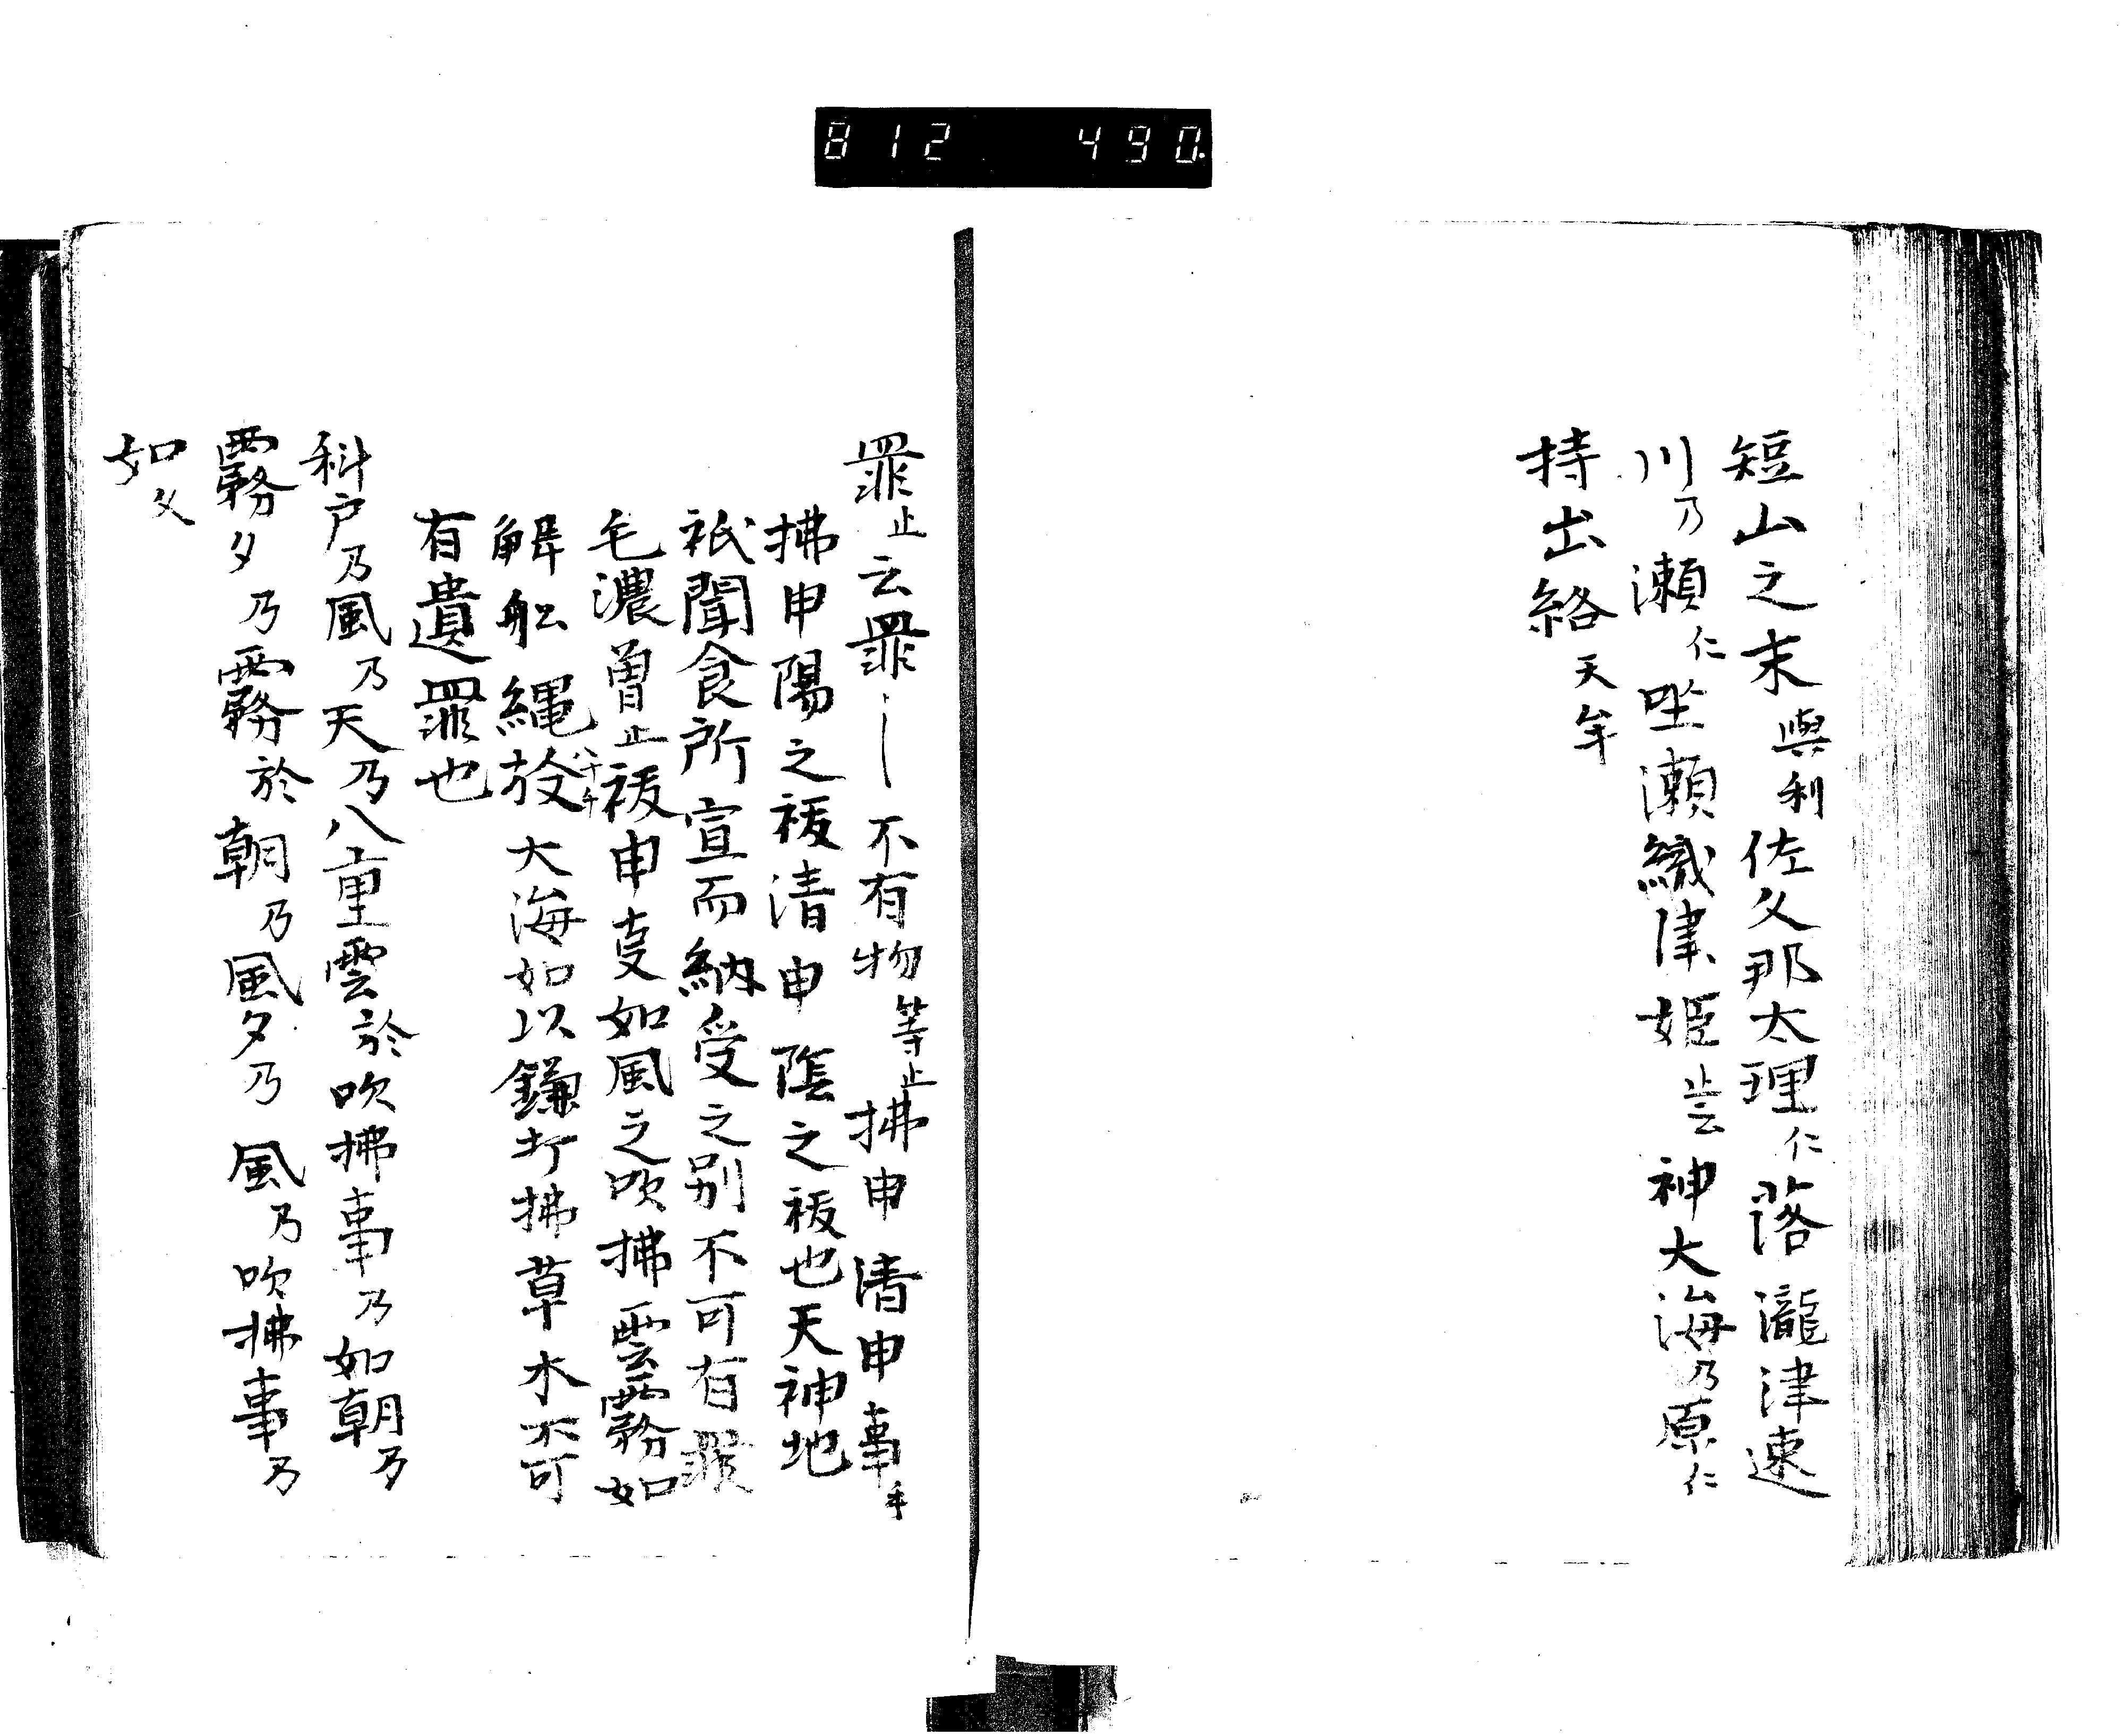 812 490.
短山之末與利佐久那太理仁落瀧津速
川乃瀬仁坐瀬織津姫止云神大海乃原仁
持出給天牟
罪止云罪〳〵不有物等止拂申清申事乎
拂申陽之祓清申陰之祓也天神地
祇聞食所宣而納受之別不可有罪
毛濃曽止祓申事如風之吹拂雲霧如
解舩繩放大海如以鎌打拂草木不可
有遺罪也
科戸乃風乃天乃八重雲於吹拂事乃如朝乃
霧夕乃霧於朝乃風夕乃風乃吹拂事乃
如久